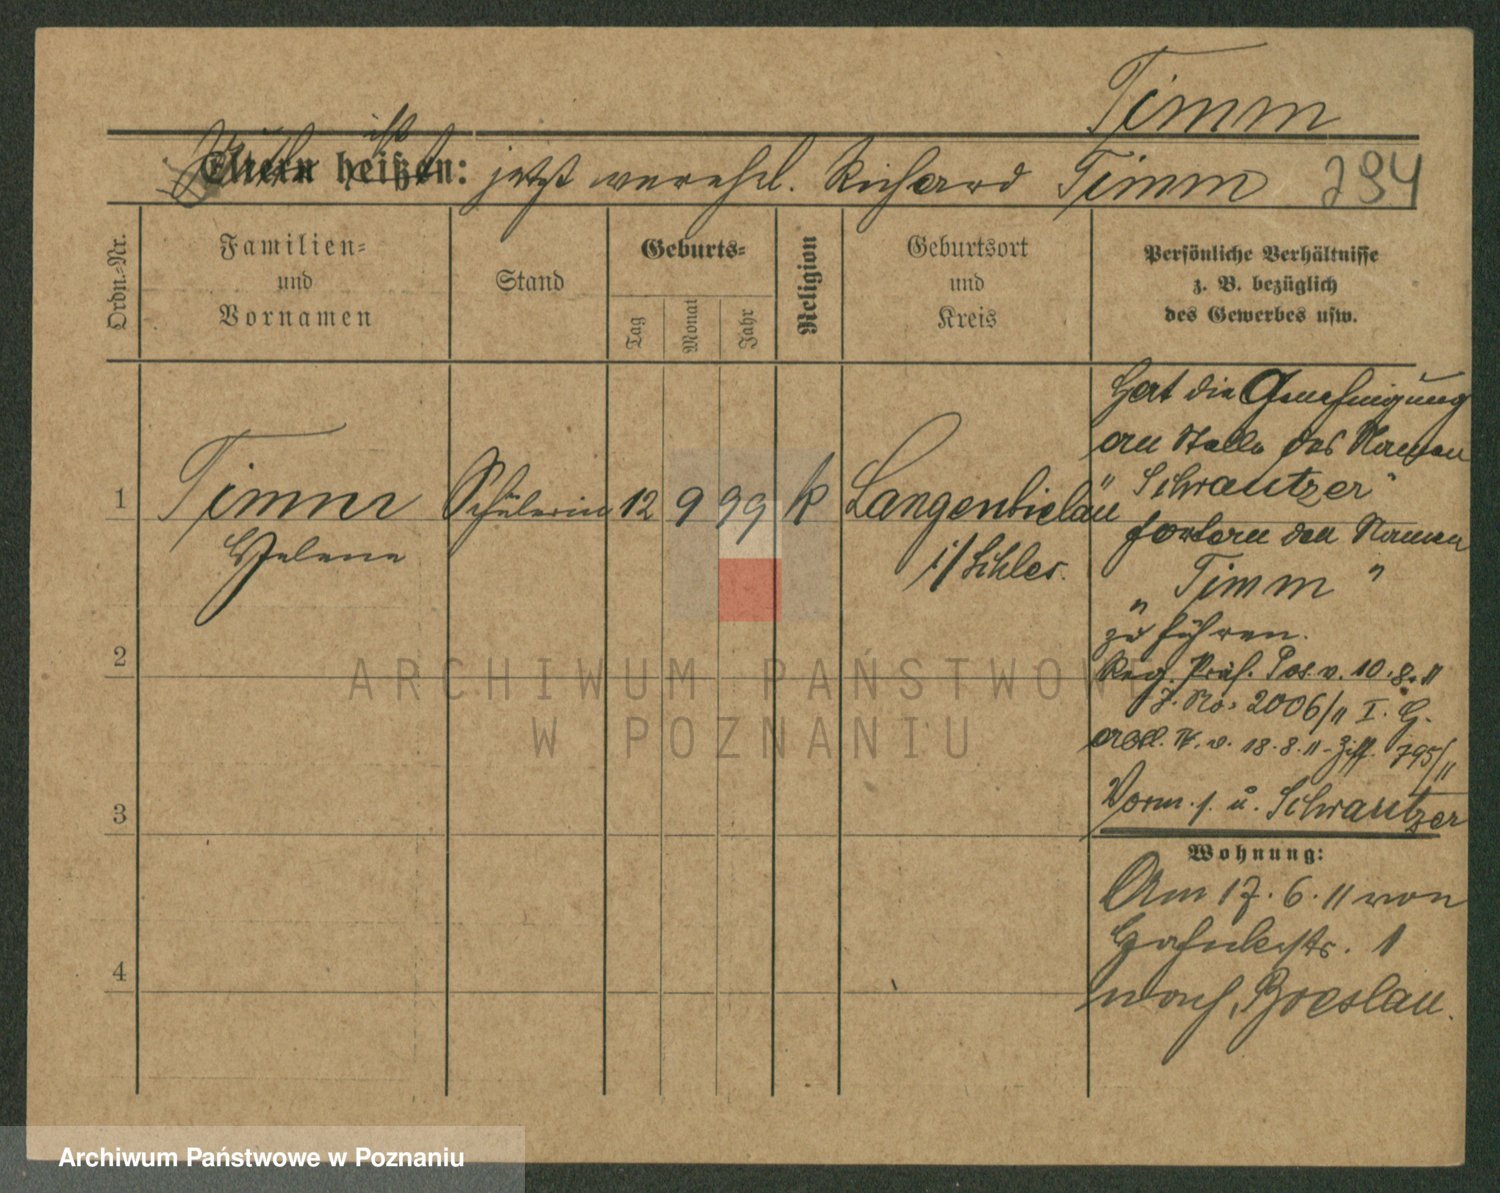 Timm
ist
Eltern heißen: jetzt verehel. Richard Timm 294
Ordn.-Nr.
Familien-
und
Vornamen
Stand
Geburts-
Tag
Monat
Jahr
Religion
Geburtsort
und
Kreis
Persönliche Verhältnisse
z. B. bezüglich
des Gewerbes usw.
1 Timm Schülerin 12 9 99 k Langenbielau
Helene
i/Schles.
Hat die Genehmigung
an Stelle des Namen
"Schwautzer"
fortan den Namen
„Timm"
zu führen.
Reg. Präs. Pos. v. 10.8.11
J. No. 2006/11 I. G.
v. 18.8.11 - Ziff. 795/11
Vorm. s. u. Schwautzer
2
3
4
Wohnung:
Am 17.6.11 von
1
nach Breslau.
ARCHIWUM PAŃSTWOWE
W POZNANIU
Archiwum Państwowe w Poznaniu